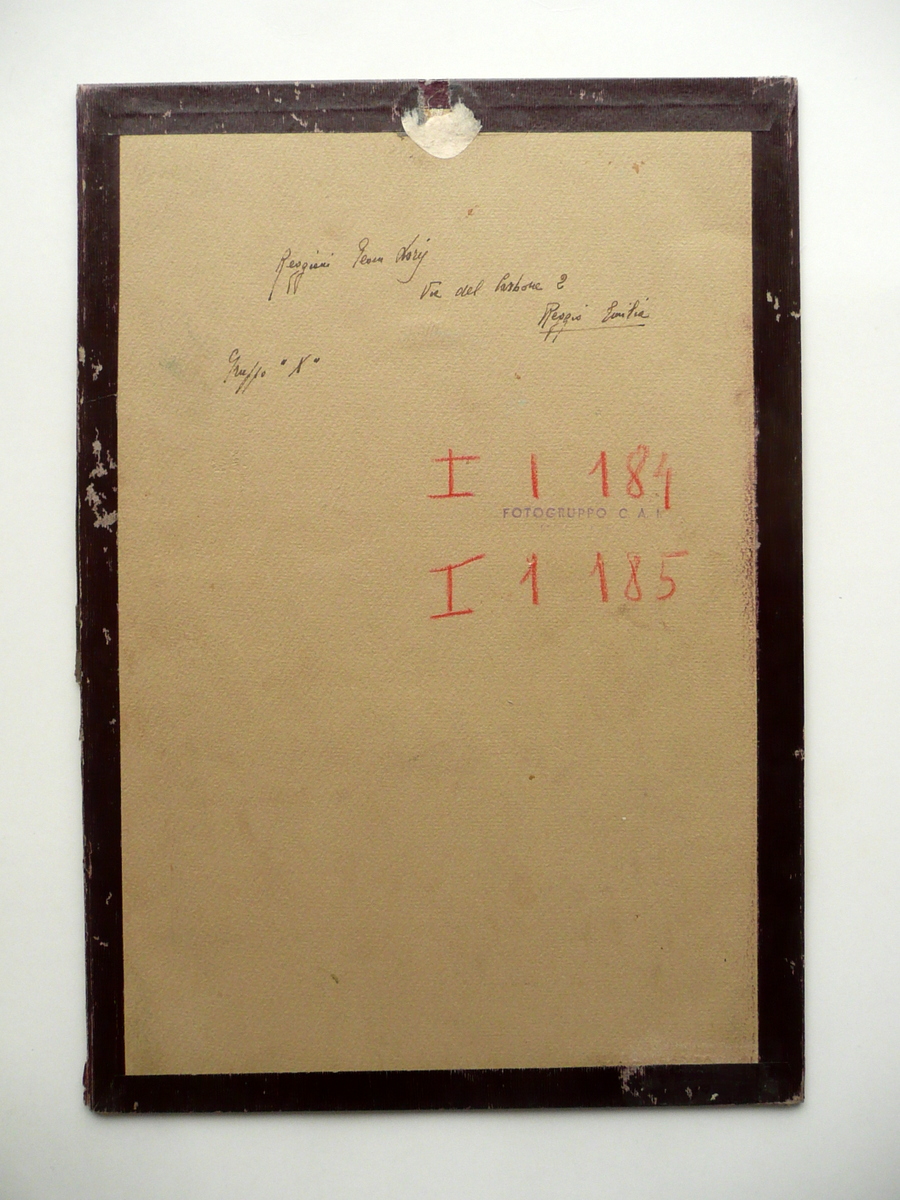 Reggiani Geom Lorij
Via del Carbone 2
Reggio Emilia
Gruppo "X"
I 1 184
FOTOGRUPPO C A I
I 1 185